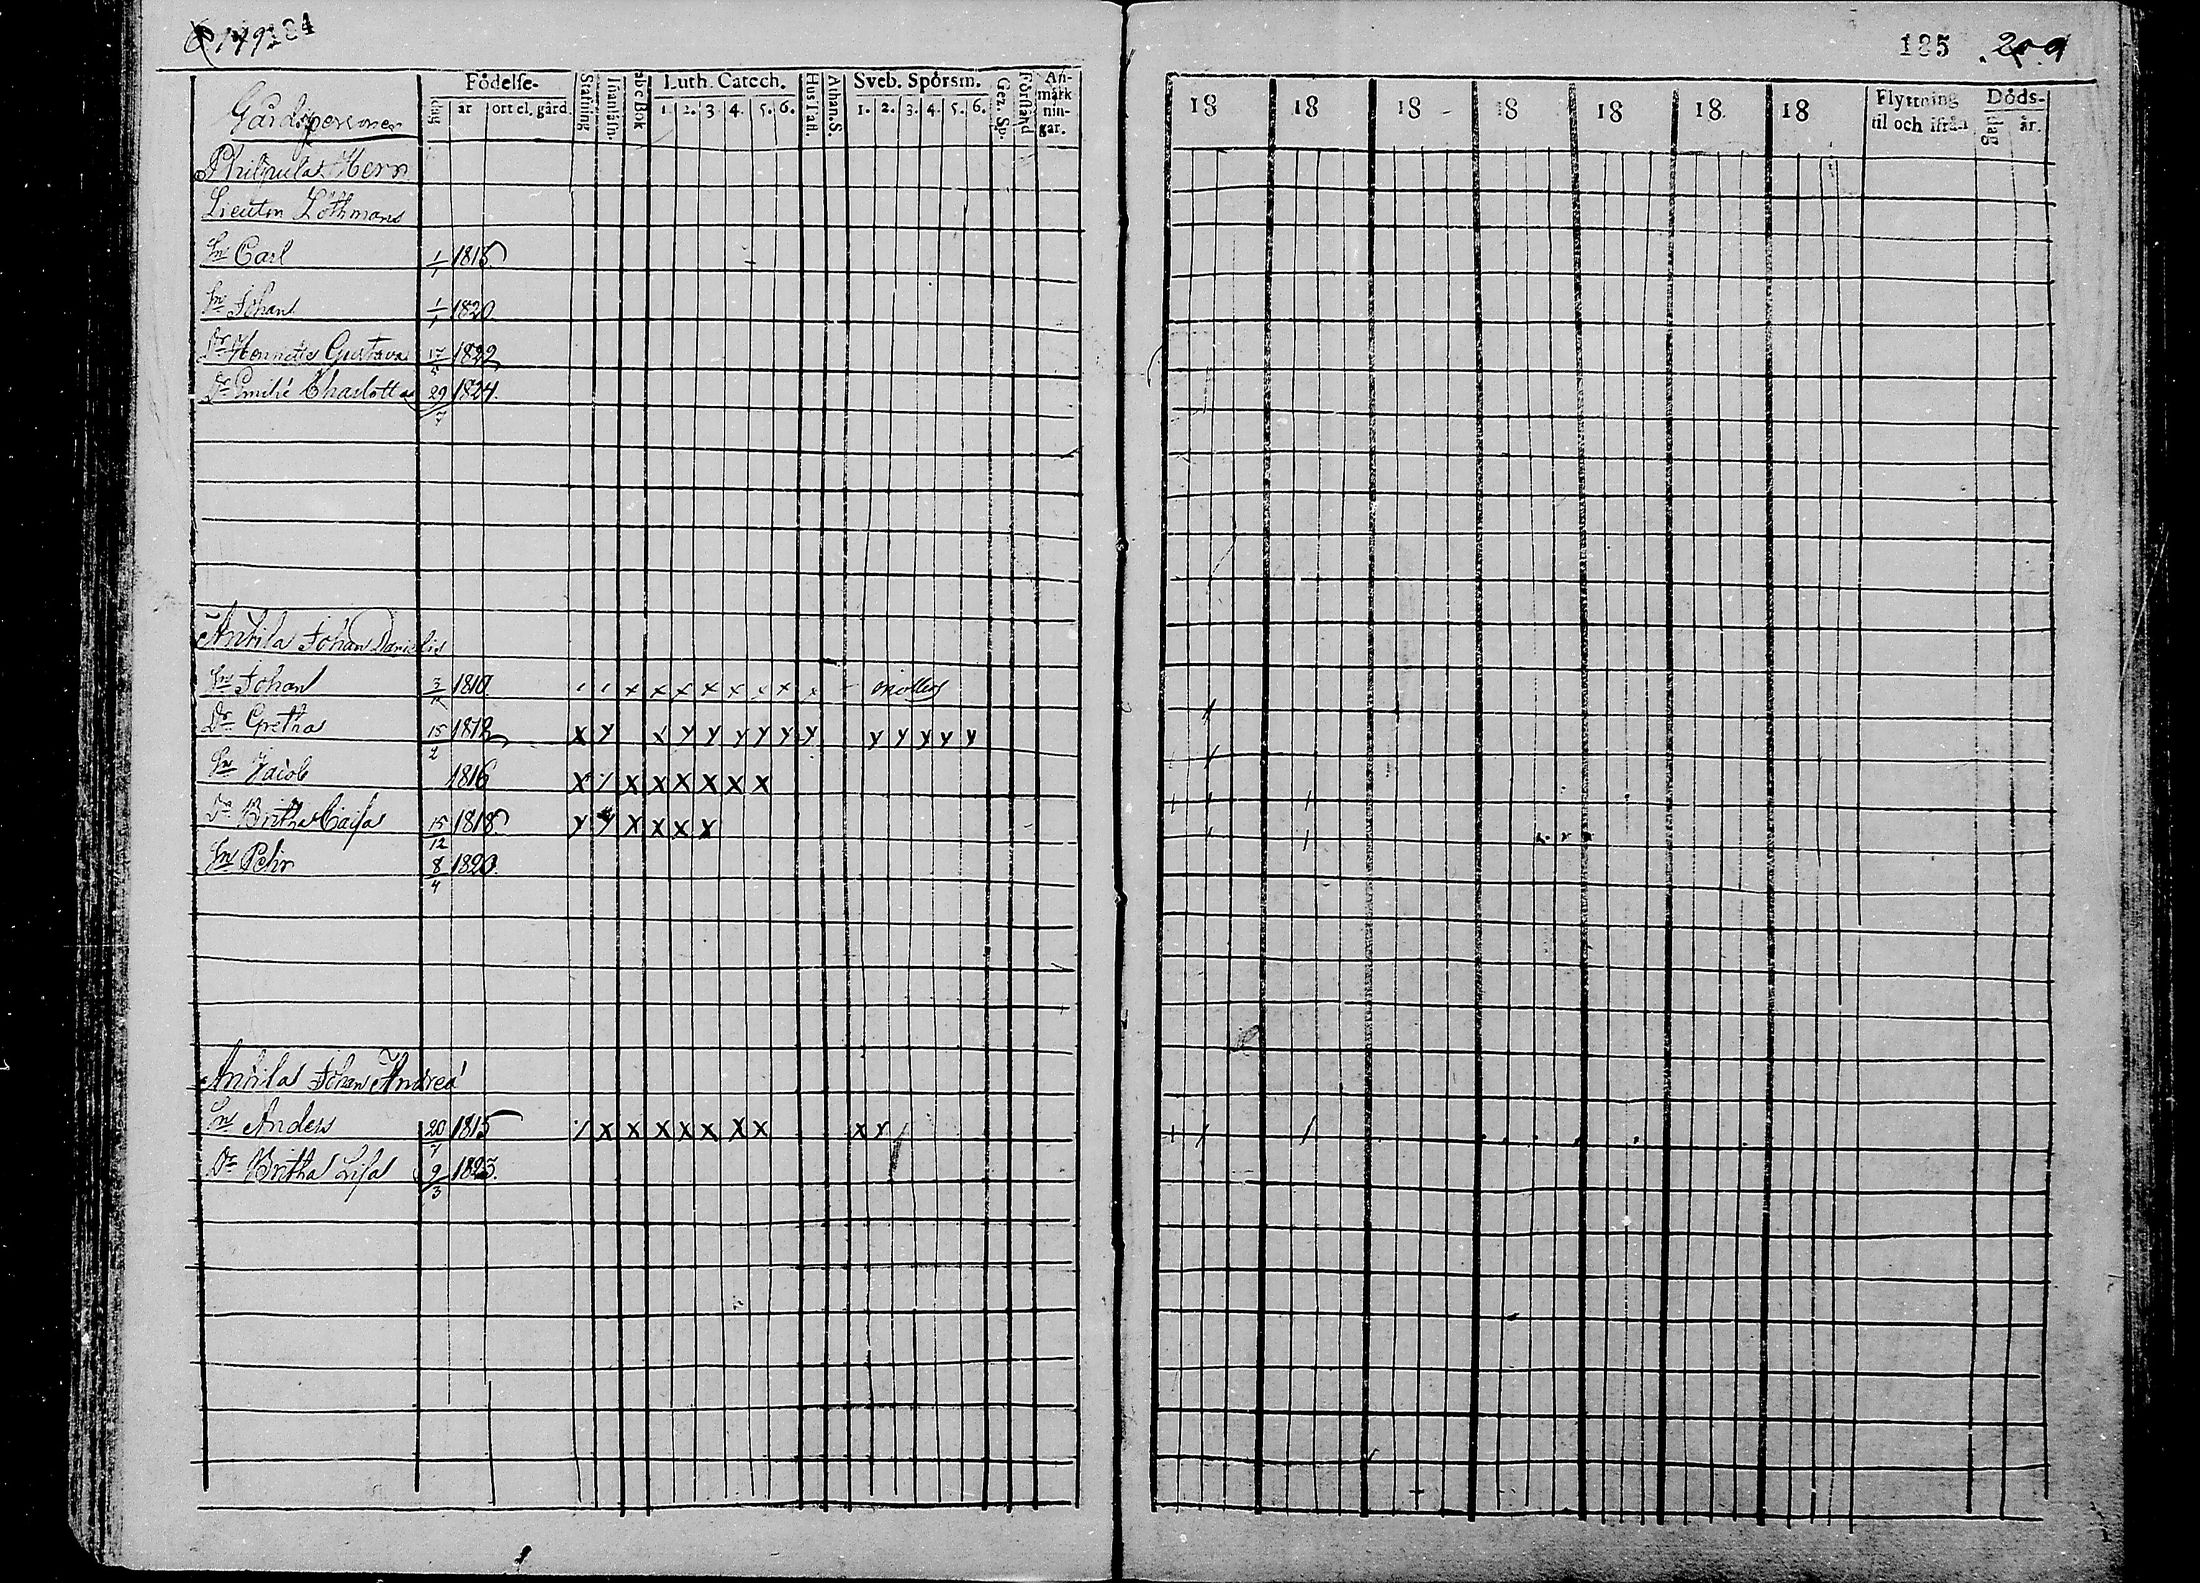 184
185 209
Födelse- Stafning abc Bok Luth. Catech. Hus Tafl. Athan. S. Sveb. Spörsm. Gez. Sp. Förstånd An-märk-nin-gar.
dag år ort el. gård 1. 2. 3 4. 5. 6. 1. 2. 3. 4. 5. 6.
18 18 18 18 18 18 18 Flyttning til och ifrån Döds- dag år.
Gårds personer
Philpula Herr
Lieutn Lothmans
Sn Carl 1/1 1815
Sn Johan 1/1 1820
Dr Henriette Gustava 17/5 1822
Dr Emilie Charlotta 29/7 1824.
Anttila Johan Daniels
Sn Johan 3/12 1810. x x x x x x x x
Dr Gretha 15/2 1812 x y x y y y y y y y y y y y
Sn Jacob 1816 x x x x x x x x
Dr Britha Caisa 15/12 1818 y y x x x x
Sn Pehr 8/4 1820.
Anttila Johan Andreæ
Sn Anders 20/7 1815 x x x x x x x x x
Dr Britha Lisa 9/3 1823.